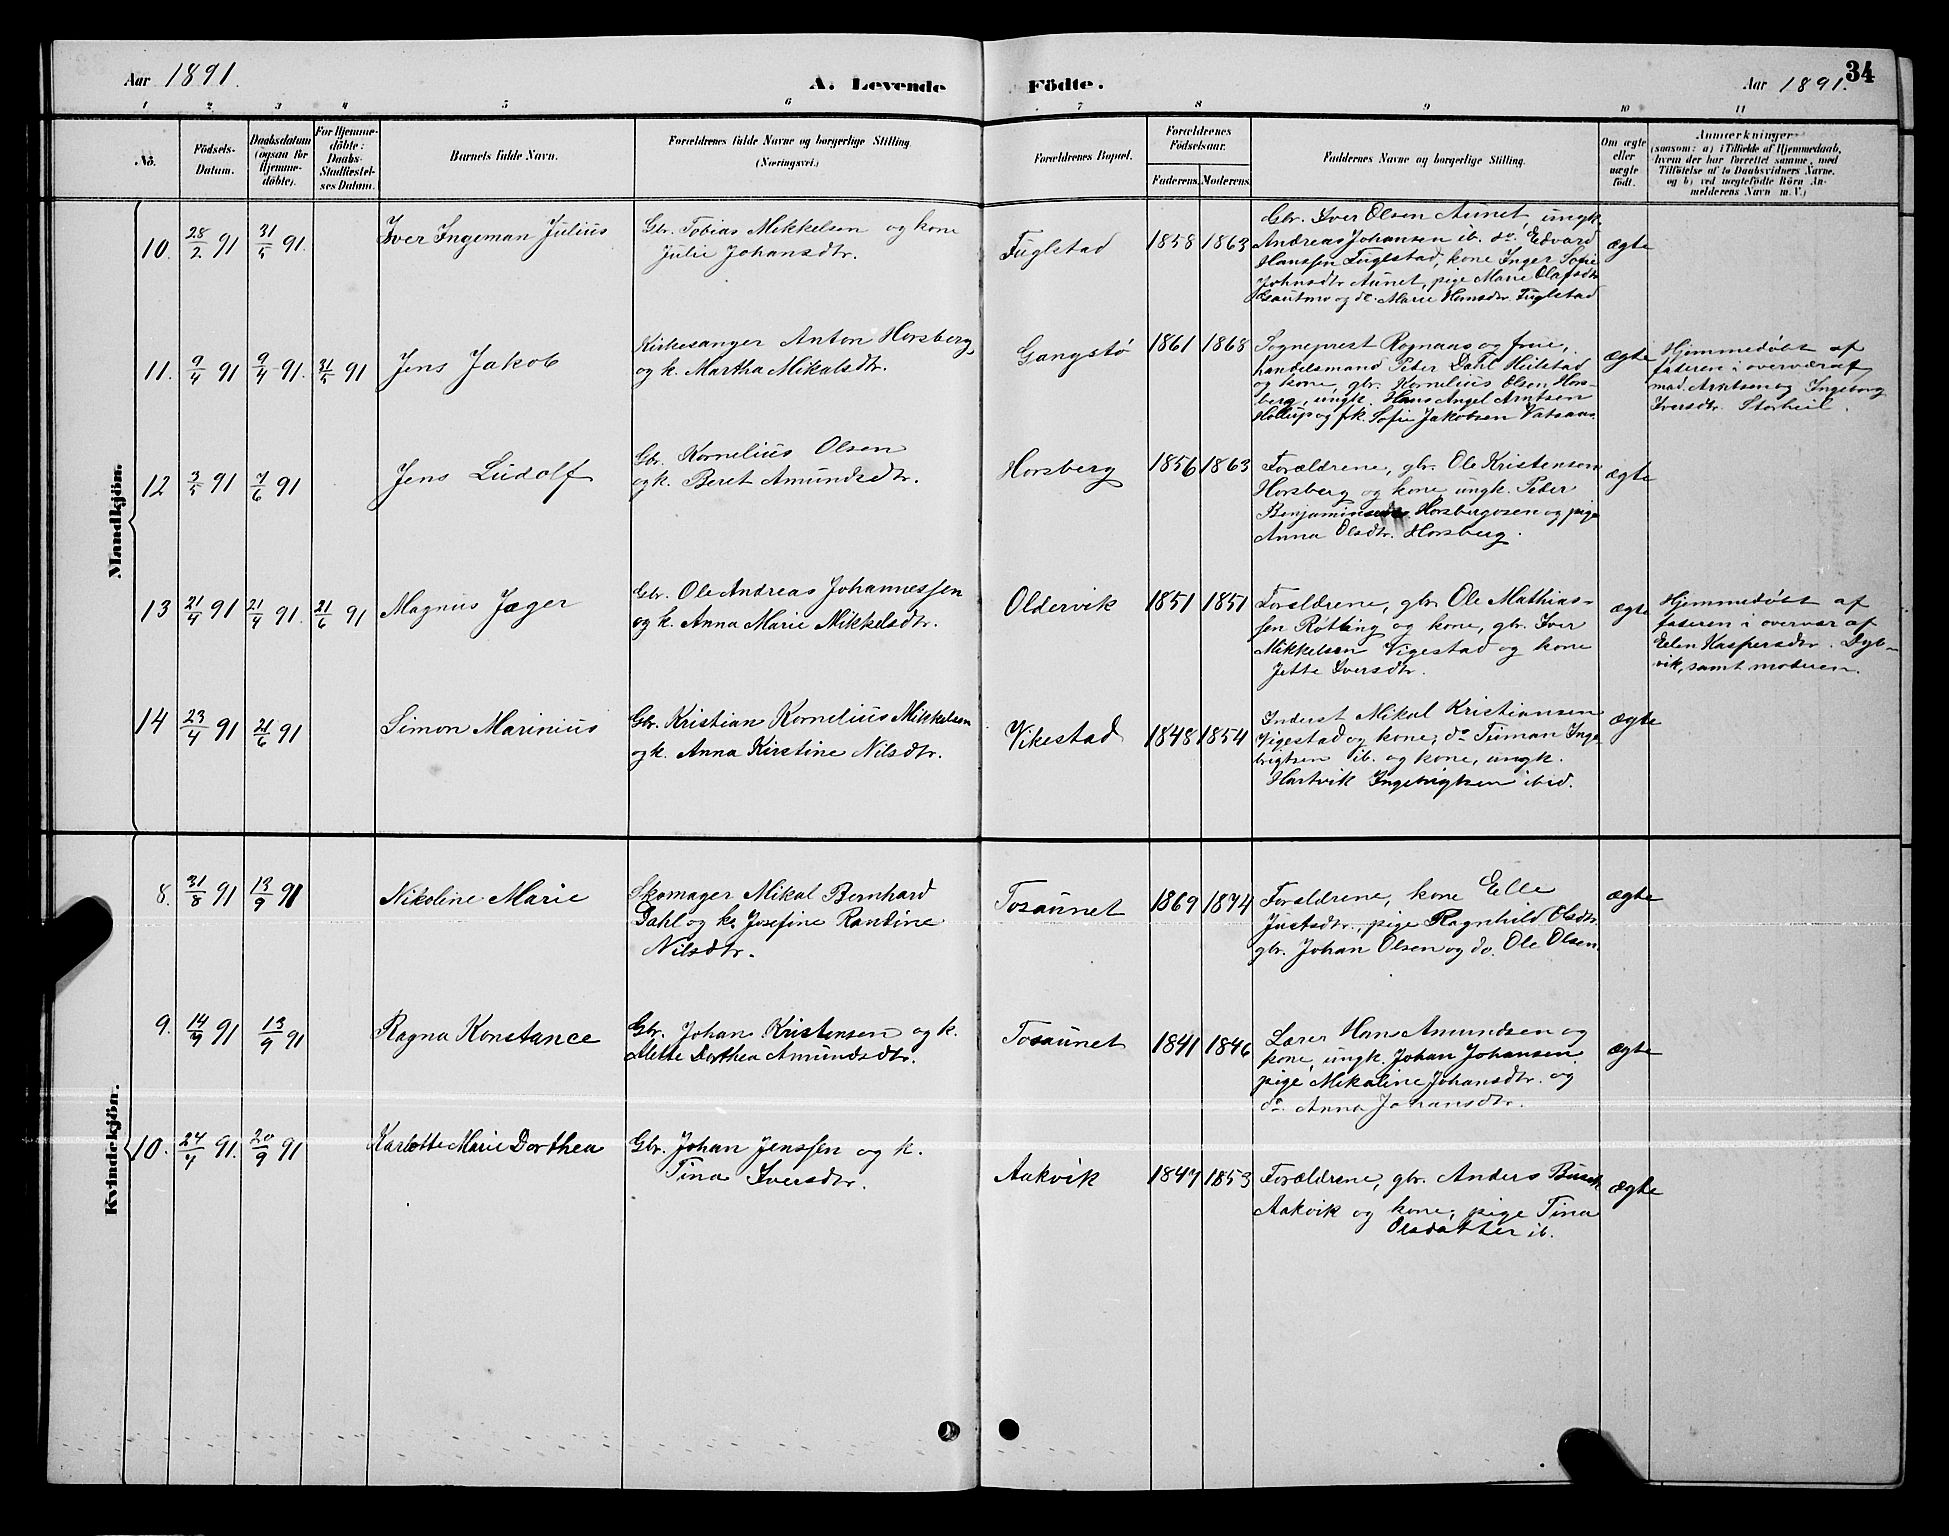 Aar 1891. A. Levende Födte. Aar 1891. 34
1 2 3 4 5 6 7 8 9 10 11
No.
Födsels-Datum.
Daabsdatum (ogsaa for Hjemme-döbte).
For Hjemme-döbte: Daabs-Stadfæstel-ses Datum.
Barnets fulde Navn.
Forældrenes fulde Navne og borgerlige Stilling. (Næringsvei.)
Forældrenes Bopæl.
Forældrenes Födselsaar.
Faderens. Moderens.
Faddernes Navne og borgerlige Stilling.
Om ægte eller uægte födt.
Anmærkninger
(saasom: a) i Tilfælde af Hjemmedaab,
hvem der har forrettet samme, med
Tilföielse af to Daabsvidners Navne,
og b) ved uægtefödte Börn An-
melderens Navn m. V.)
Mandkjön.
10. 28/2 91 31/5 91. Iver Ingeman Julius
Gbr. Tobias Mikkelsen og kone
Julie Johansdtr.
Fuglstad 1858 1863
Gbr. Iver Olsen Aunet, ungk.
Andreas Johansen ib. do. Edvard
Hanssen Fuglstad, kone Inger Sofie
Johnsdtr Aunet, pige Marie Olafsdtr
Gautmo og do. Marie Hansdtr Fuglstad
ægte
11. 9/4 91 9/4 91. 31/5 91 Jens Jakob
Kirkesanger Anton Horsberg
og k. Martha Mikalsdtr.
Gangstø 1861 1868
Sogneprest Rognaas og frue,
handelsmand Peter Dahl Heilstad
og kone, gbr. Kornelius Olsen Hors-
berg, ungk. Hans Angel Arntsen
Hollup og frk. Sofie Jakobsen Vatsaas
ægte
Hjemmedøbt af
faderen i overvær af
mad. Arntsen og Ingeborg
Iversdtr. Storheil.
12 3/5 91 7/6 91 Jens Ludolf
Gbr. Kornelius Olsen
og k. Beret Amundsdtr.
Horsberg 1856 1863
Forældrene, gbr. Ole Kristensen
Horsberg og kone ungk. Peter
Benjaminsen Horsbergosen og pige
Anna Olsdtr. Horsberg.
ægte
13 21/4 91 21/4 91. 21/6 91 Magnus Jæger
Gbr. Ole Andreas Johannessen
og k. Anna Marie Mikkelsdtr.
Oldervik 1851 1851
Forældrene, gbr. Ole Mathias-
sen Røtting og kone, gbr. Iver
Mikkelsen Vigestad og kone
Jette Iversdtr.
ægte
Hjemmedøbt af
faderen i overvær af
Elen Kaspersdtr. Dyb-
vik, samt moderen.
14 23/4 91 21/6 91 Simon Marinius
Gbr. Kristian Kornelius Mikkelsen
og k. Anna Kirstine Nilsdtr.
Vikestad 1848 1854
Inderst Mikal Kristiansen
Vigestad og kone, do Tuman Inge-
brigtsen ib. og kone, ungk.
Hartvik Ingebrigtsen ibid.
ægte
Kvindekjön.
8. 31/8 91 13/9 91 Nikoline Marie
Skomager Mikal Bernhard
Dahl og k. Josefine Randine
Nilsdtr.
Tosaunet 1869 1874
Forældrene, kone Elle
Justsdtr., pige Ragnhild Olsdtr
gbr. Johan Olsen og do. Ole Olsen.
ægte
9. 14/7 91 13/9 91 Ragna Konstance
Gbr. Johan Kristensen og k.
Mette Dorthea Amundsdtr.
Tosaunet 1841 1846
Lærer Hans Amundsen og
kone, ungk. Johan Johansen,
pige Mikaline Johansdtr. og
do. Anna Johansdtr.
ægte
10. 24/7 91. 20/9 91 Karlotte Marie Dorthea
Gbr. Johan Jenssen og k.
Tina Iversdtr.
Aakvik 1847 1853
Forældrene, gbr. Anders Busch
Aakvik og kone, pige Tina
Olsdatter ib.
ægte